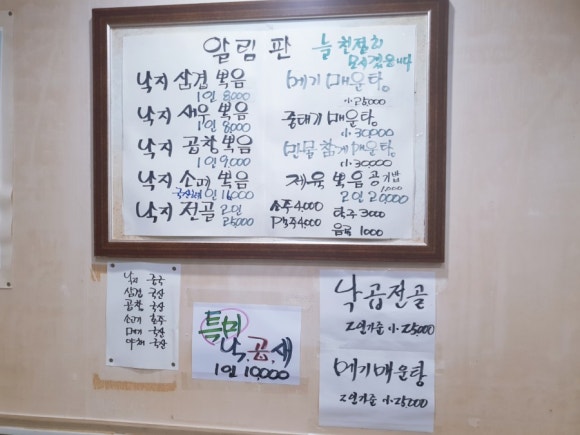 알림판
늘 친절히
모시겠습니다
낙지 삼겹 볶음
1인 8000
낙지 새우 볶음
1인 8000
낙지 곱창 볶음
1인 9,000
낙지 소고기 볶음
1인
낙지 전골 2인
25,000
메기 매운탕
小 25,000
중태기 매운탕
小 30000
민물 참게 매운탕
小 30000
제육 볶음 공기밥
1,000
2인 20,000
소주 4,000 탁주 3000
맥주 4,000 음료 1000
낙지 중국
삼겹 국산
곱창 국산
소고기 호주
메기 국산
야채 국산
특미
낙.곱.새
1인 10,000
낙곱전골
2인기준 小 25,000
메기매운탕
2인기준 小 25000